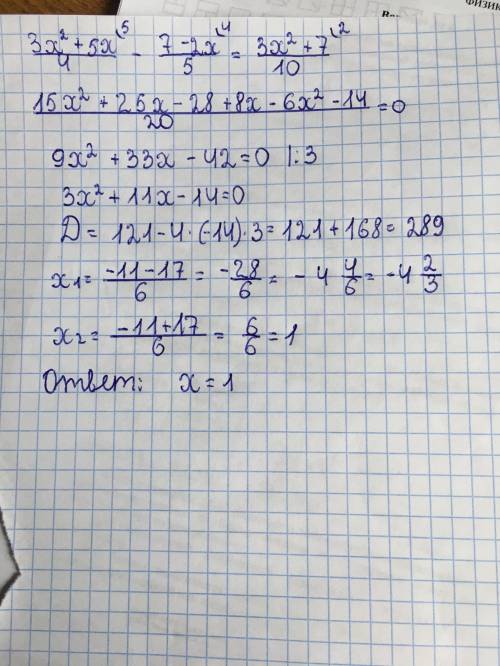 физик
Ва
(3x² + 5x)/4 ⁽⁵ - (7 - 2x)/5 ⁽⁴ = (3x² + 7)/10 ⁽²
(15x² + 25x - 28 + 8x - 6x² - 14)/20 = 0
9x² + 33x - 42 = 0 |:3
3x² + 11x - 14 = 0
D = 121 - 4 · (-14) · 3 = 121 + 168 = 289
x₁ = (-11 - 17)/6 = -28/6 = -4 4/6 = -4 2/3
x₂ = (-11 + 17)/6 = 6/6 = 1
Ответ: x = 1